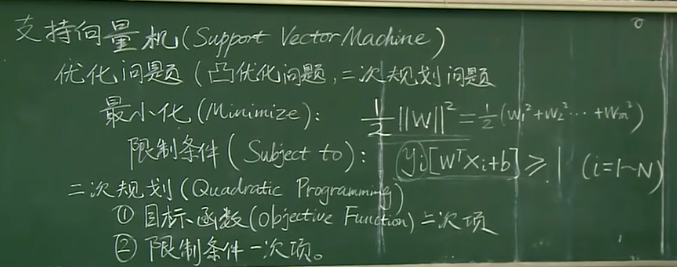 支持向量机(Support Vector Machine)
优化问题(凸优化问题,二次规划问题
最小化(Minimize): 1/2||W||² = 1/2(W₁²+W₂²···+Wm²)
限制条件(Subject to): yi[WᵀXi+b] ≥ 1 (i=1~N)
二次规划(Quadratic Programming)
① 目标函数(Objective Function)二次项
② 限制条件一次项。